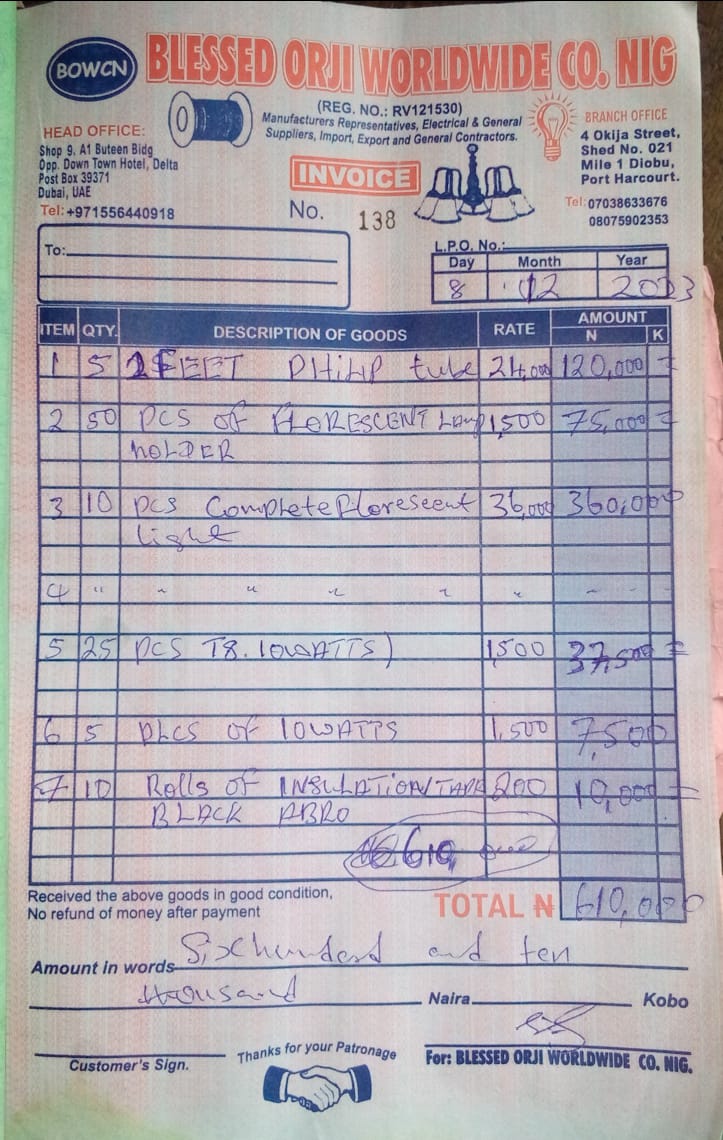 BOWCN
BLESSED ORJI WORLDWIDE CO. NIG
(REG. NO.: RV121530)
Manufacturers Representatives, Electrical & General
Suppliers, Import, Export and General Contractors.
HEAD OFFICE:
Shop 9, A1 Buteen Bidg
Opp. Down Town Hotel, Delta
Post Box 39371
Dubai, UAE
Tel: +971556440918
BRANCH OFFICE
4 Okija Street,
Shed No. 021
Mile 1 Diobu,
Port Harcourt.
Tel: 07038633676
08075902353
INVOICE
No. 138
To:
L.P.O. No.:
Day Month Year
8 12 2023
ITEM QTY. DESCRIPTION OF GOODS RATE AMOUNT
N K
1 5 2FEET PHILIP tube 24,000 120,000 =
2 50 PCS OF FLORESCENT Lamp 1,500 75,000 =
HOLDER
3 10 PCS Complete Florescent 36,000 360,000
light
4 " " " " " " - -
5 25 PCS T8. 10WATTS) 1,500 37,500 =
6 5 PCS OF 10WATTS 1,500 7,500
7 10 Rolls of INSULATION TAPE 200 10,000 =
BLACK ABRO
610,000
Received the above goods in good condition,
No refund of money after payment
TOTAL ₦ 610,000
Amount in words Six hundred and ten
thousand Naira Kobo
Customer's Sign.
Thanks for your Patronage
For: BLESSED ORJI WORLDWIDE CO. NIG.